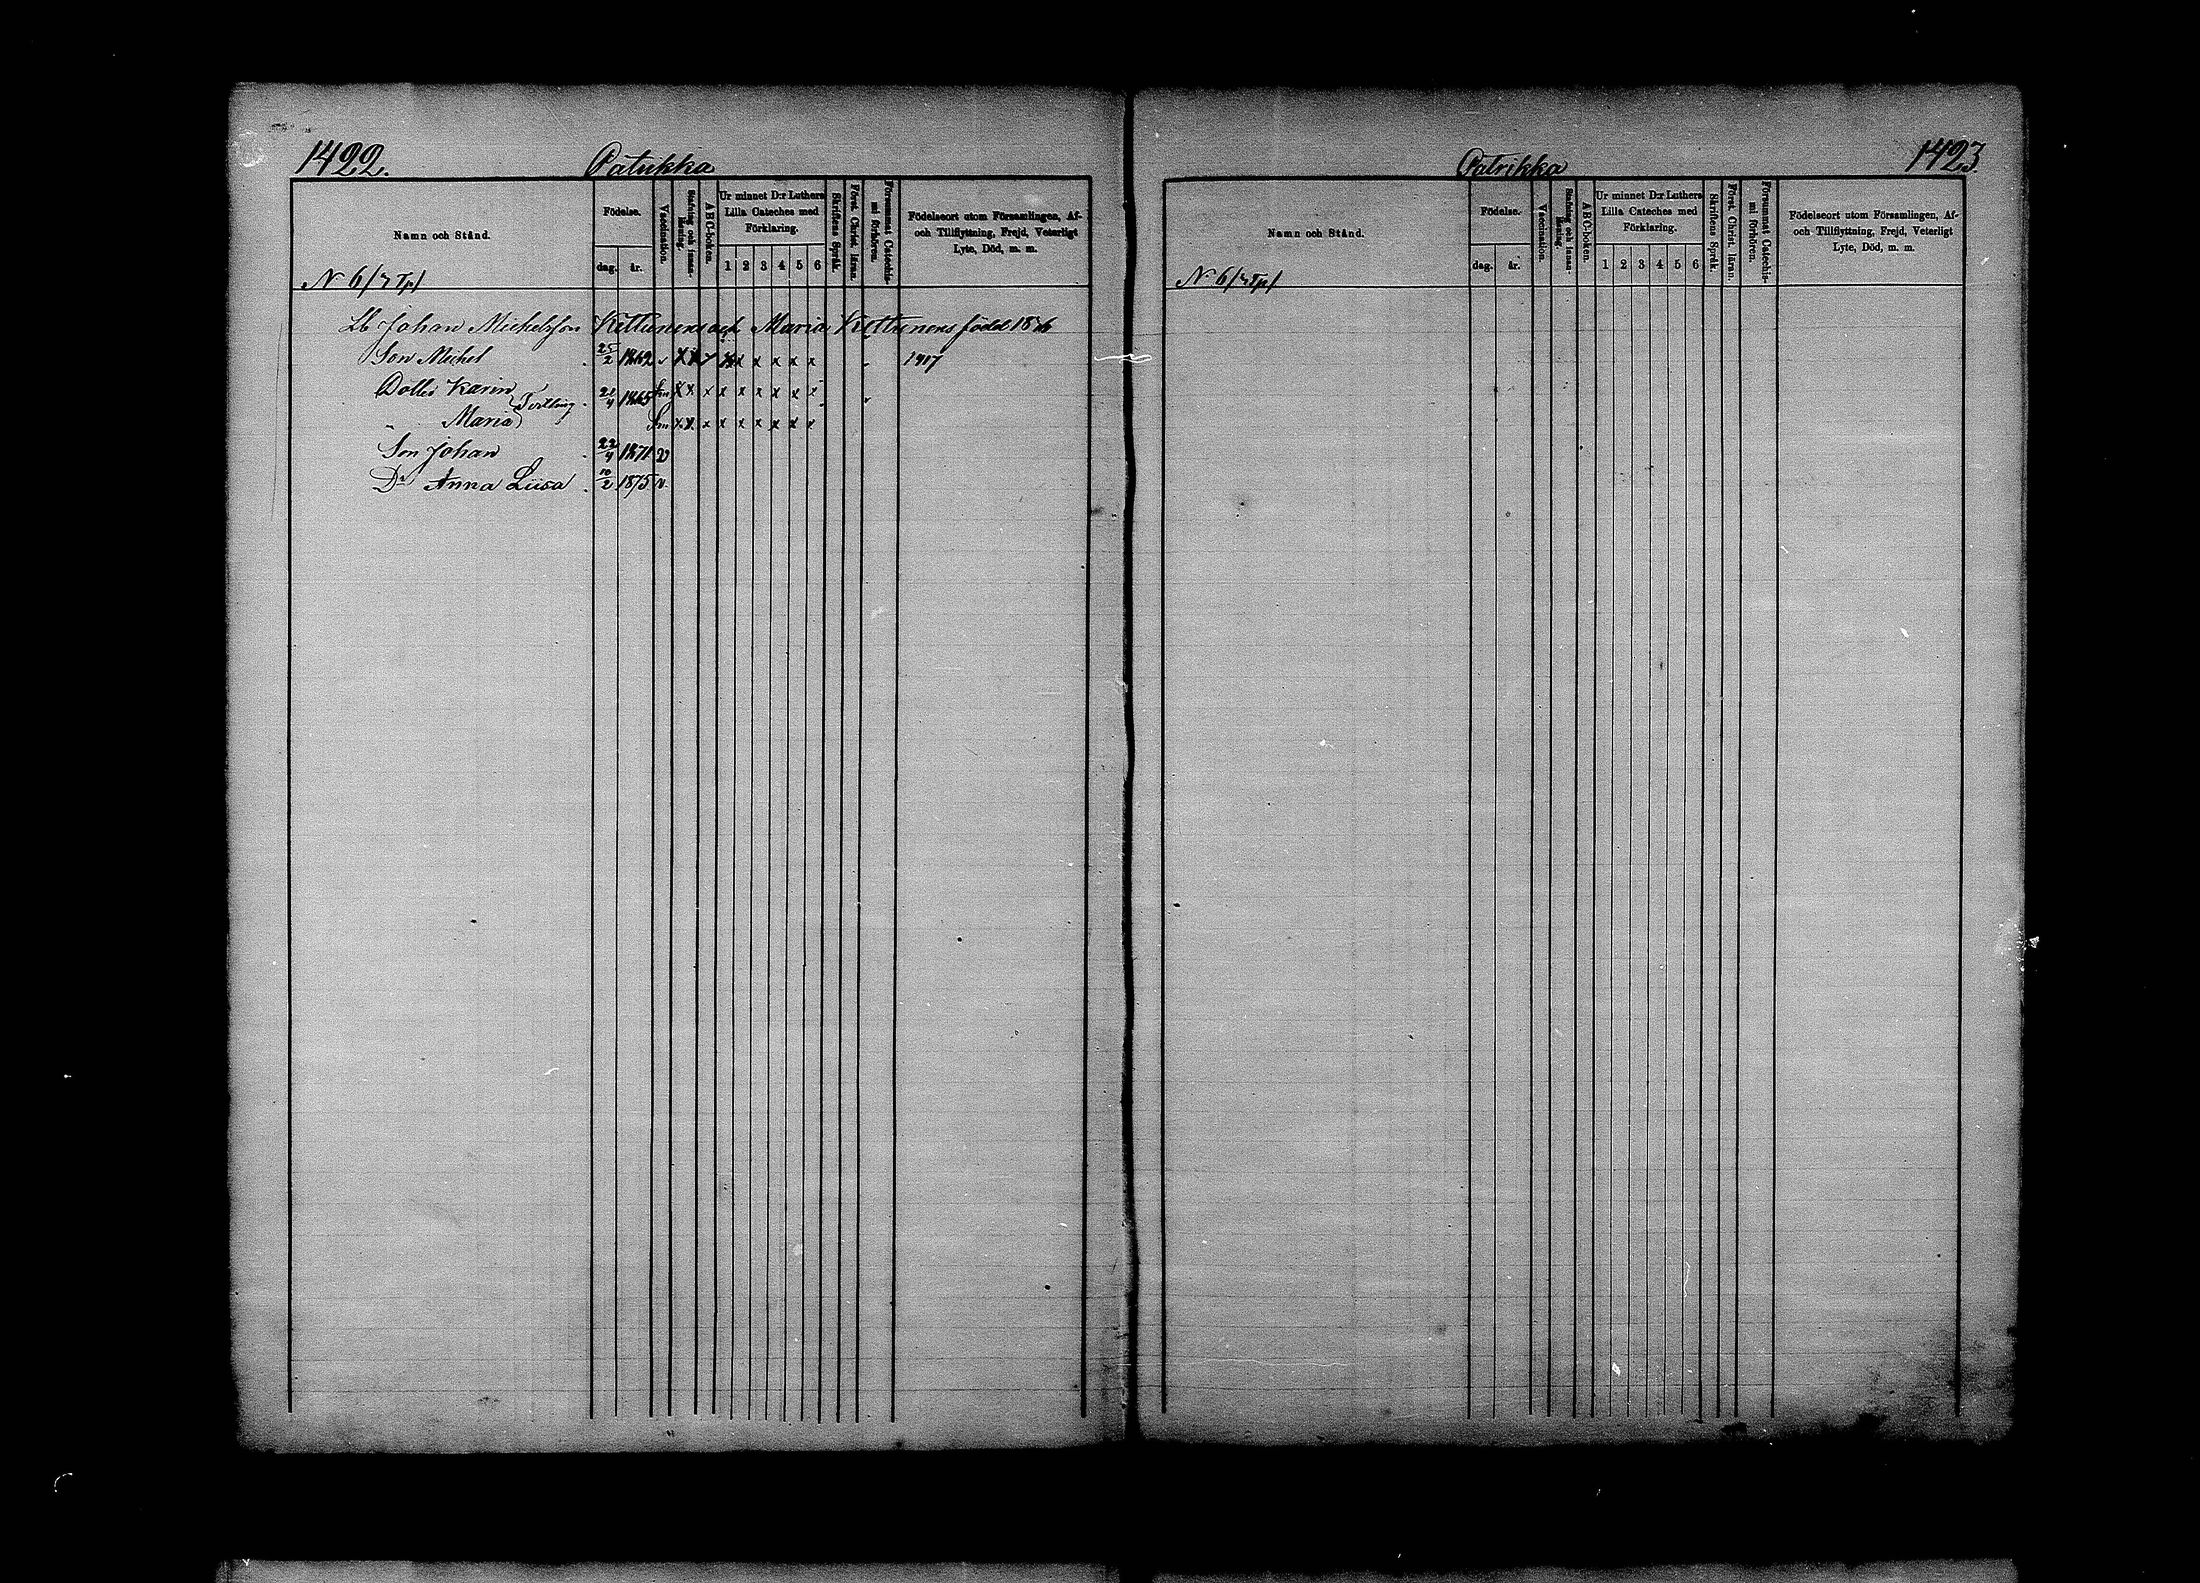 1422.
Patukka
Namn och Stånd.
Födelse.
dag. år.
Vaccination.
Stafning och innan-läsning.
A B C-boken.
Ur minnet D:r Luthers
Lilla Cateches med
Förklaring.
1 2 3 4 5 6
Skriftens Språk.
Förest. Christ. läran.
Försummat Catechis-
mi förhören.
Födelseort utom Församlingen, Af-
och Tillflyttning, Frejd, Veterligt
Lyte, Död, m. m.
N 6/7 Tp/
Lb Johan Michelsson Kettunens och Maria Kettunens född 1836
Son Michel 25/2 1862 v x x v x x x x x x 1417
Dottr Karin Tvilling 21/4 1865 x x x x x x x x x
" Maria x x x x x x x x x
Son Johan 22/4 1871 v
Dr Anna Liisa 10/2 1875 v.
1423.
Patrikka
Namn och Stånd.
Födelse.
dag. år.
Vaccination.
Stafning och innan-läsning.
A B C-boken.
Ur minnet D:r Luthers
Lilla Cateches med
Förklaring.
1 2 3 4 5 6
Skriftens Språk.
Förest. Christ. läran.
Försummat Catechis-
mi förhören.
Födelseort utom Församlingen, Af-
och Tillflyttning, Frejd, Veterligt
Lyte, Död, m. m.
N. 6/7 Tp/